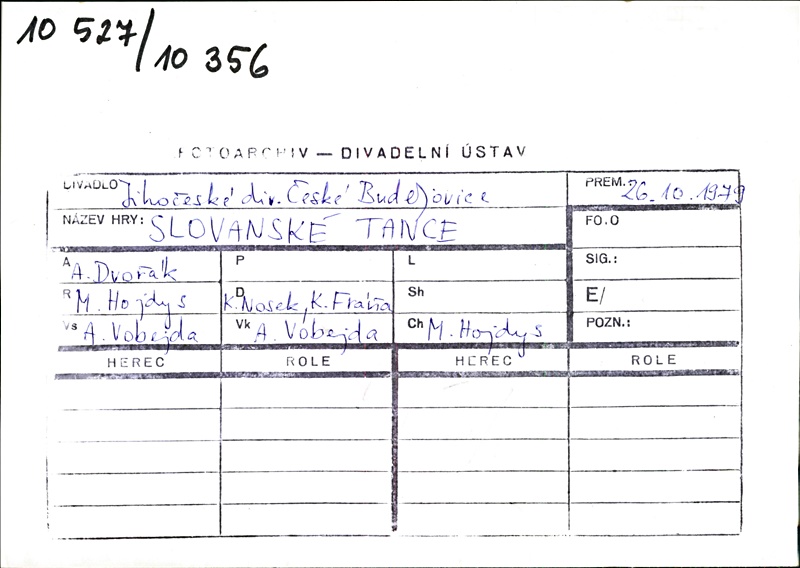 10 527/
10 356
FOTOARCHIV — DIVADELNÍ ÚSTAV
DIVADLO Jihočeské div. České Budějovice PREM. 26. 10. 1979
NÁZEV HRY: SLOVANSKÉ TANCE FO.O
A A. Dvořák P L SIG.:
R M. Hojdys D K. Nosek, K. Fráňa Sh E/
Vs A. Vobejda Vk A. Vobejda Ch M. Hojdys POZN.:
HEREC ROLE HEREC ROLE